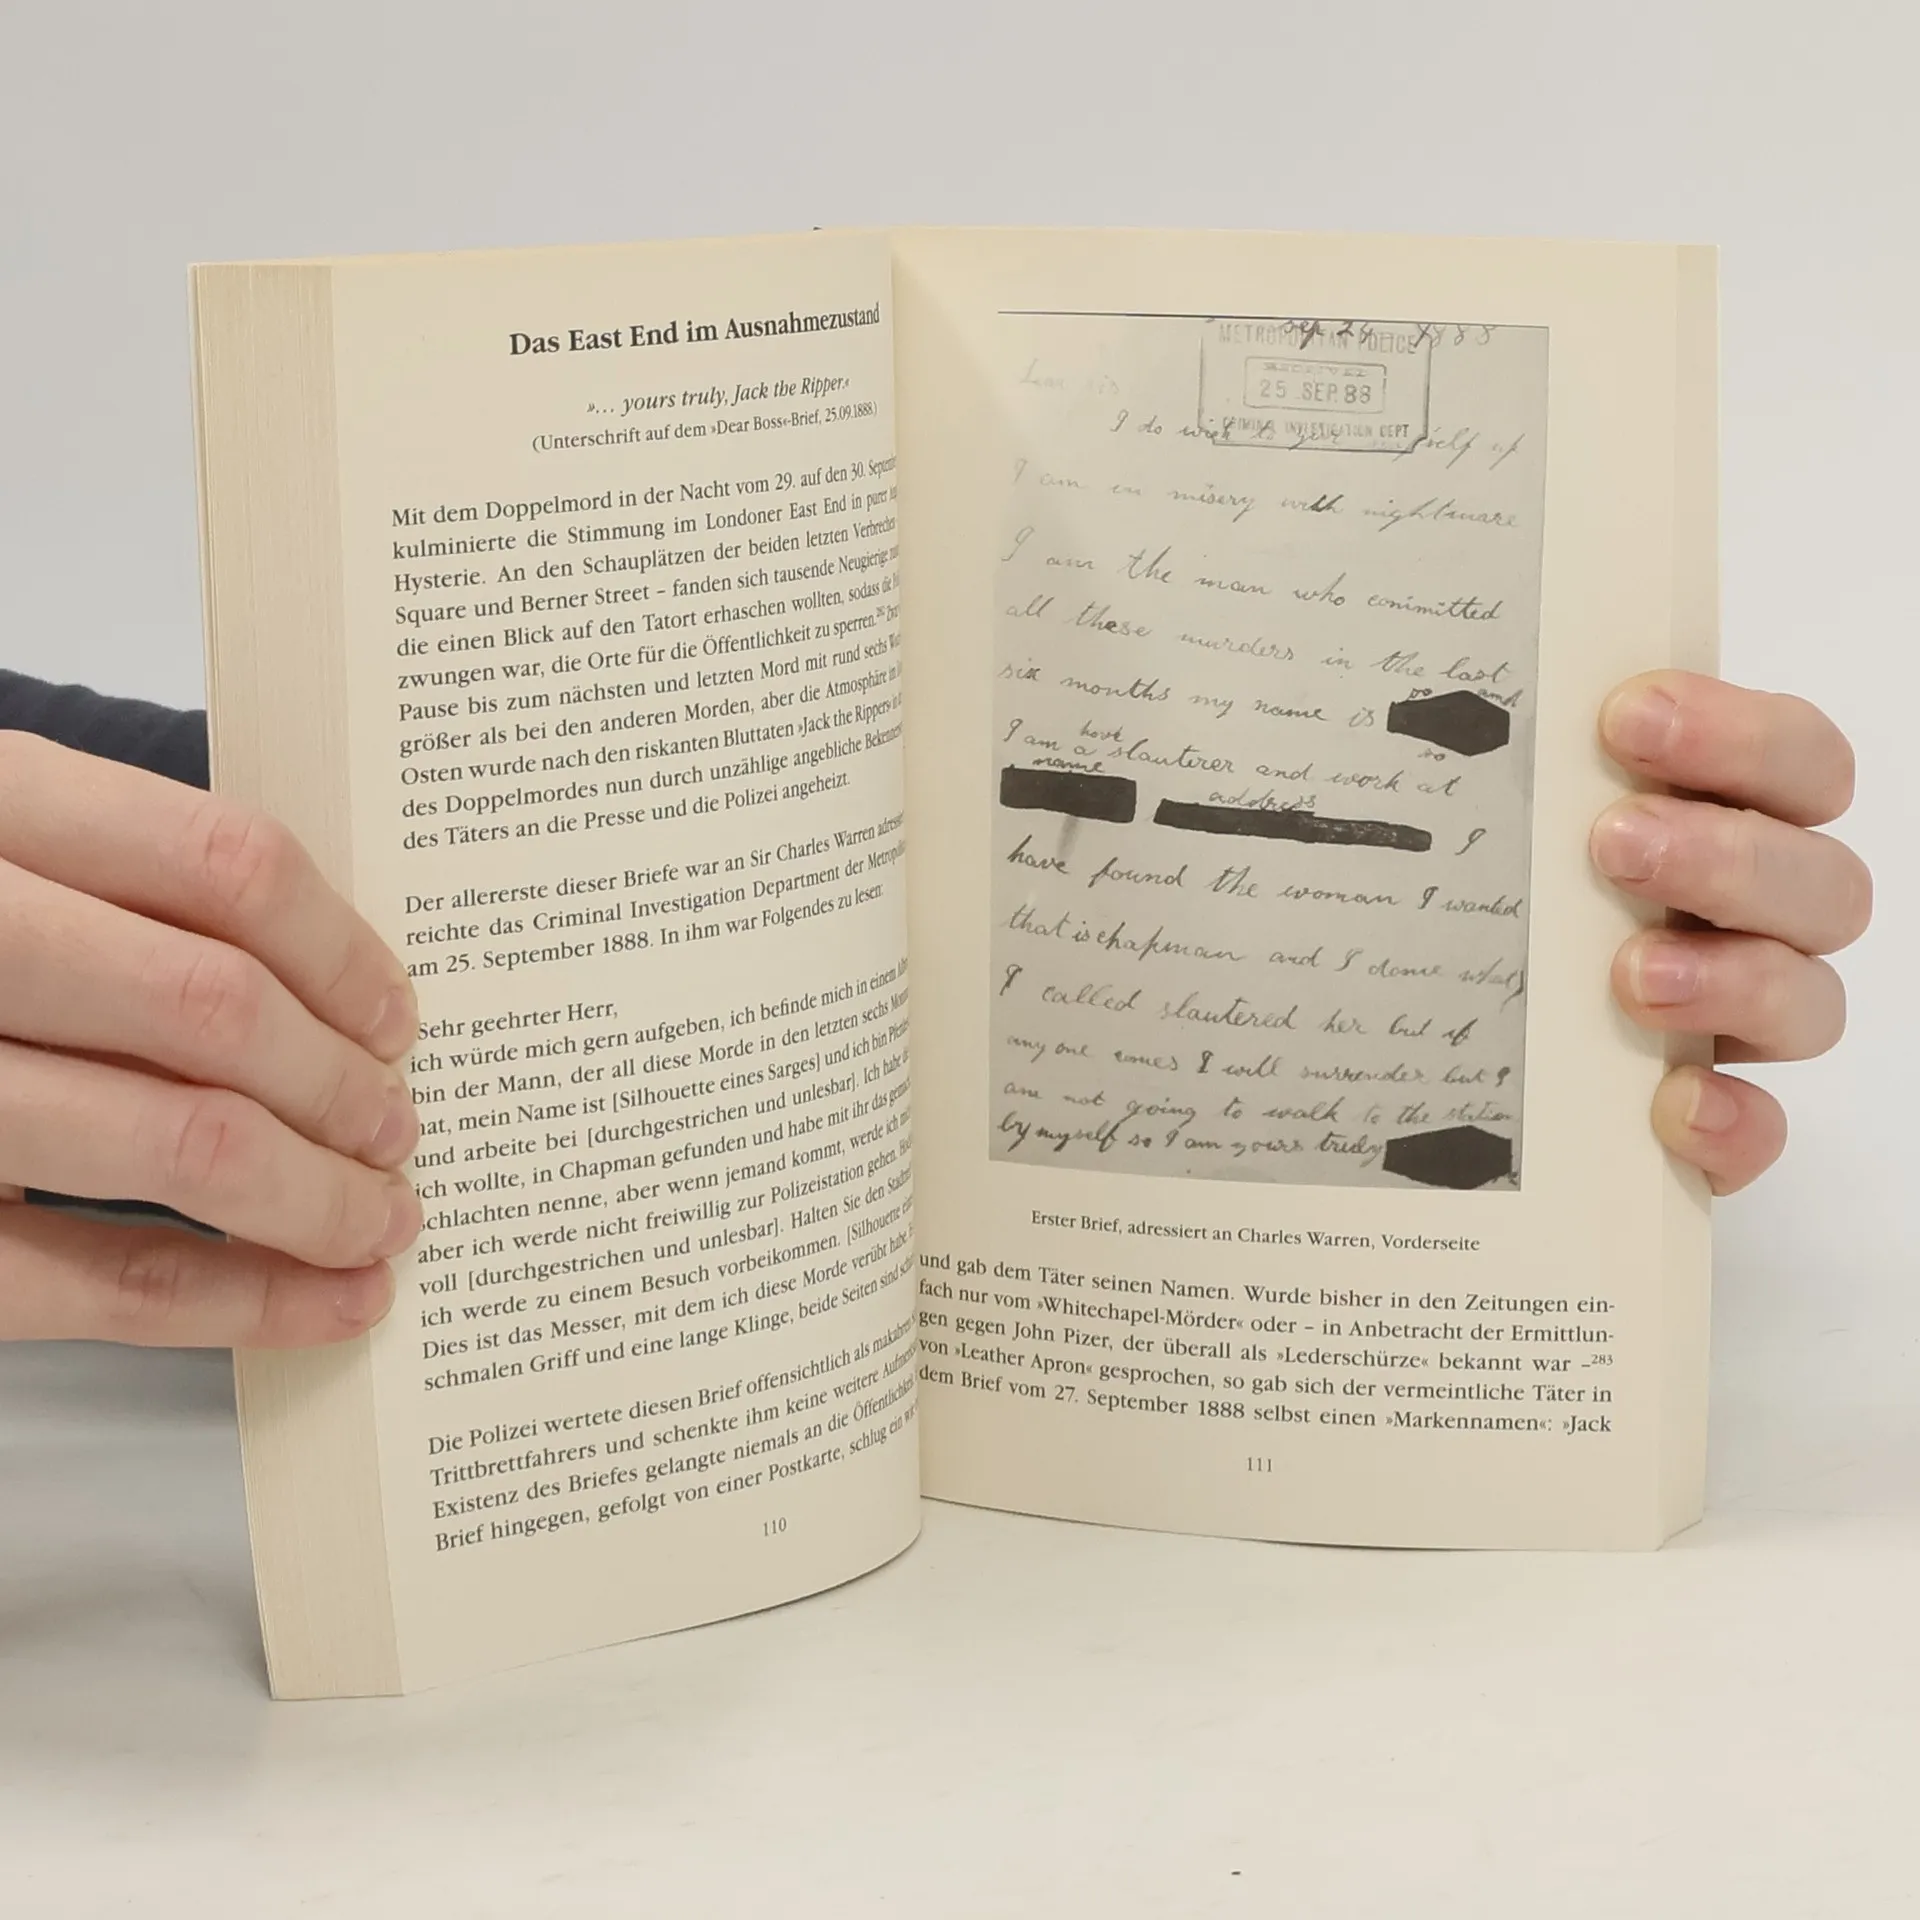 Das East End im Ausnahmezustand
»… yours truly, Jack the Ripper.«
(Unterschrift auf dem »Dear Boss«-Brief, 25.09.1888.)
Mit dem Doppelmord in der Nacht vom 29. auf den 30.
kulminierte die Stimmung im Londoner East End in purer
Hysterie. An den Schauplätzen der beiden letzten
Square und Berner Street – fanden sich tausende Neugierige
die einen Blick auf den Tatort erhaschen wollten, sodass die
zwungen war, die Orte für die Öffentlichkeit zu sperren.
Pause bis zum nächsten und letzten Mord mit rund sechs
größer als bei den anderen Morden, aber die Atmosphäre im
Osten wurde nach den riskanten Bluttaten »Jack the Rippers«
des Doppelmordes nun durch unzählige angebliche
des Täters an die Presse und die Polizei angeheizt.
Der allererste dieser Briefe war an Sir Charles Warren
reichte das Criminal Investigation Department der
am 25. September 1888. In ihm war Folgendes zu lesen:
Sehr geehrter Herr,
ich würde mich gern aufgeben, ich befinde mich in einem
bin der Mann, der all diese Morde in den letzten sechs
hat, mein Name ist [Silhouette eines Sarges] und ich bin
und arbeite bei [durchgestrichen und unlesbar]. Ich habe
ich wollte, in Chapman gefunden und habe mit ihr das
schlachten nenne, aber wenn jemand kommt, werde ich
aber ich werde nicht freiwillig zur Polizeistation gehen.
voll [durchgestrichen und unlesbar]. Halten Sie den
ich werde zu einem Besuch vorbeikommen. [Silhouette
Dies ist das Messer, mit dem ich diese Morde verübt habe
schmalen Griff und eine lange Klinge, beide Seiten sind
Die Polizei wertete diesen Brief offensichtlich als
Trittbrettfahrers und schenkte ihm keine weitere
Existenz des Briefes gelangte niemals an die Öffentlichkeit.
Brief hingegen, gefolgt von einer Postkarte, schlug ein wie
110
sep 24 1888
METROPOLITAN POLICE
RECEIVED
25 SEP. 88
CRIMINAL INVESTIGATION DEPT
Dear sir
I do wish to give self up
I am in misery with nightmare
I am the man who committed
all these murders in the last
six months my name is so and
so
I am a horse slauterer and work at
name
address
I
have found the woman I wanted
that is chapman and I done what
I called slautered her but if
any one comes I will surrender but I
am not going to walk to the station
by myself so I am yours truly
Erster Brief, adressiert an Charles Warren, Vorderseite
und gab dem Täter seinen Namen. Wurde bisher in den Zeitungen ein-
fach nur vom »Whitechapel-Mörder« oder – in Anbetracht der Ermittlun-
gen gegen John Pizer, der überall als »Lederschürze« bekannt war –283
von »Leather Apron« gesprochen, so gab sich der vermeintliche Täter in
dem Brief vom 27. September 1888 selbst einen »Markennamen«: »Jack
111